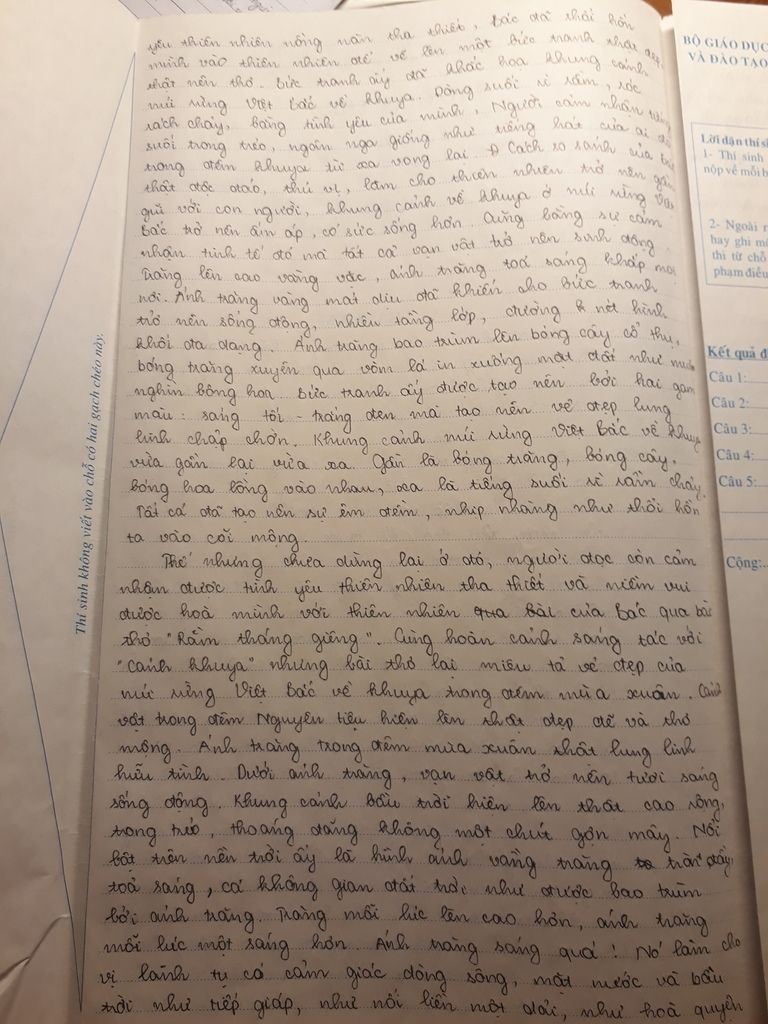 yêu thiên nhiên nồng nàn tha thiết, Bác đã thải hồn
mình vào thiên nhiên để vẽ lên một bức tranh thật đẹp,
thật nên thơ. Bức tranh ấy đã khắc họa khung cảnh
núi rừng Việt Bắc về khuya. Dòng suối rì rầm, róc
rách chảy, bằng tình yêu của mình, Người cảm nhận tiếng
suối trong trẻo, ngân nga giống như tiếng hát của ai đó
trong đêm khuya từ xa vọng lại. Cách so sánh của Bác
thật độc đáo, thú vị, làm cho thiên nhiên trở nên gần
gũi với con người, khung cảnh về khuya ở núi rừng Việt
Bắc trở nên ấm áp, có sức sống hơn. Cũng bằng sự cảm
nhận tinh tế đó mà tất cả vạn vật trở nên sinh động.
Trăng lên cao vằng vặc, ánh trăng toả sáng khắp mọi
nơi. Ánh trăng vàng mát dịu đã khiến cho bức tranh
trở nên sống động, nhiều tầng lớp, đường nét hình
khối đa dạng. Ánh trăng bao trùm lên bóng cây cổ thụ,
bóng trăng xuyên qua vòm lá in xuống mặt đất như muôn
nghìn bông hoa. Bức tranh ấy được tạo nên bởi hai gam
màu: sáng tối - trắng đen mà tạo nên vẻ đẹp lung
linh chập chờn. Khung cảnh núi rừng Việt Bắc về khuya
vừa gần lại vừa xa. Gần là bóng trăng, bóng cây,
bóng hoa lồng vào nhau, xa là tiếng suối rì rầm chảy.
Tất cả đã tạo nên sự êm đềm, nhịp nhàng như thổi hồn
ta vào cõi mộng.
Thế nhưng chưa dừng lại ở đó, người đọc còn cảm
nhận được tình yêu thiên nhiên tha thiết và niềm vui
được hoà mình với thiên nhiên của Bác qua bài
thơ "Rằm tháng giêng". Cùng hoàn cảnh sáng tác với
"Cảnh khuya" nhưng bài thơ lại miêu tả vẻ đẹp của
núi rừng Việt Bắc về khuya trong đêm mùa xuân. Cảnh
vật trong đêm Nguyên tiêu hiện lên thật đẹp đẽ và thơ
mộng. Ánh trăng trong đêm mùa xuân thật lung linh
hữu tình. Dưới ánh trăng, vạn vật trở nên tươi sáng
sống động. Khung cảnh bầu trời hiện lên thật cao rộng,
trong trẻo, thoáng đãng không một chút gợn mây. Nổi
bật trên nền trời ấy là hình ảnh vầng trăng tràn đầy,
toả sáng, cả không gian đất trời như được bao trùm
bởi ánh trăng. Trăng mỗi lúc lên cao hơn, ánh trăng
mỗi lúc một sáng hơn. Ánh trăng sáng quá! Nó làm cho
vị lãnh tụ có cảm giác dòng sông, mặt nước và bầu
trời như tiếp giáp, như nối liền một dải, như hoà quyện
Thí sinh không viết vào chỗ có hai gạch chéo này.
BỘ GIÁO DỤC
VÀ ĐÀO TẠO
Lời dặn thí si
1- Thí sinh
nộp về mỗi b
2- Ngoài r
hay ghi mộ
thi từ chỗ
phạm điều
Kết quả đ
Câu 1:
Câu 2:
Câu 3:
Câu 4:
Câu 5:
Cộng: